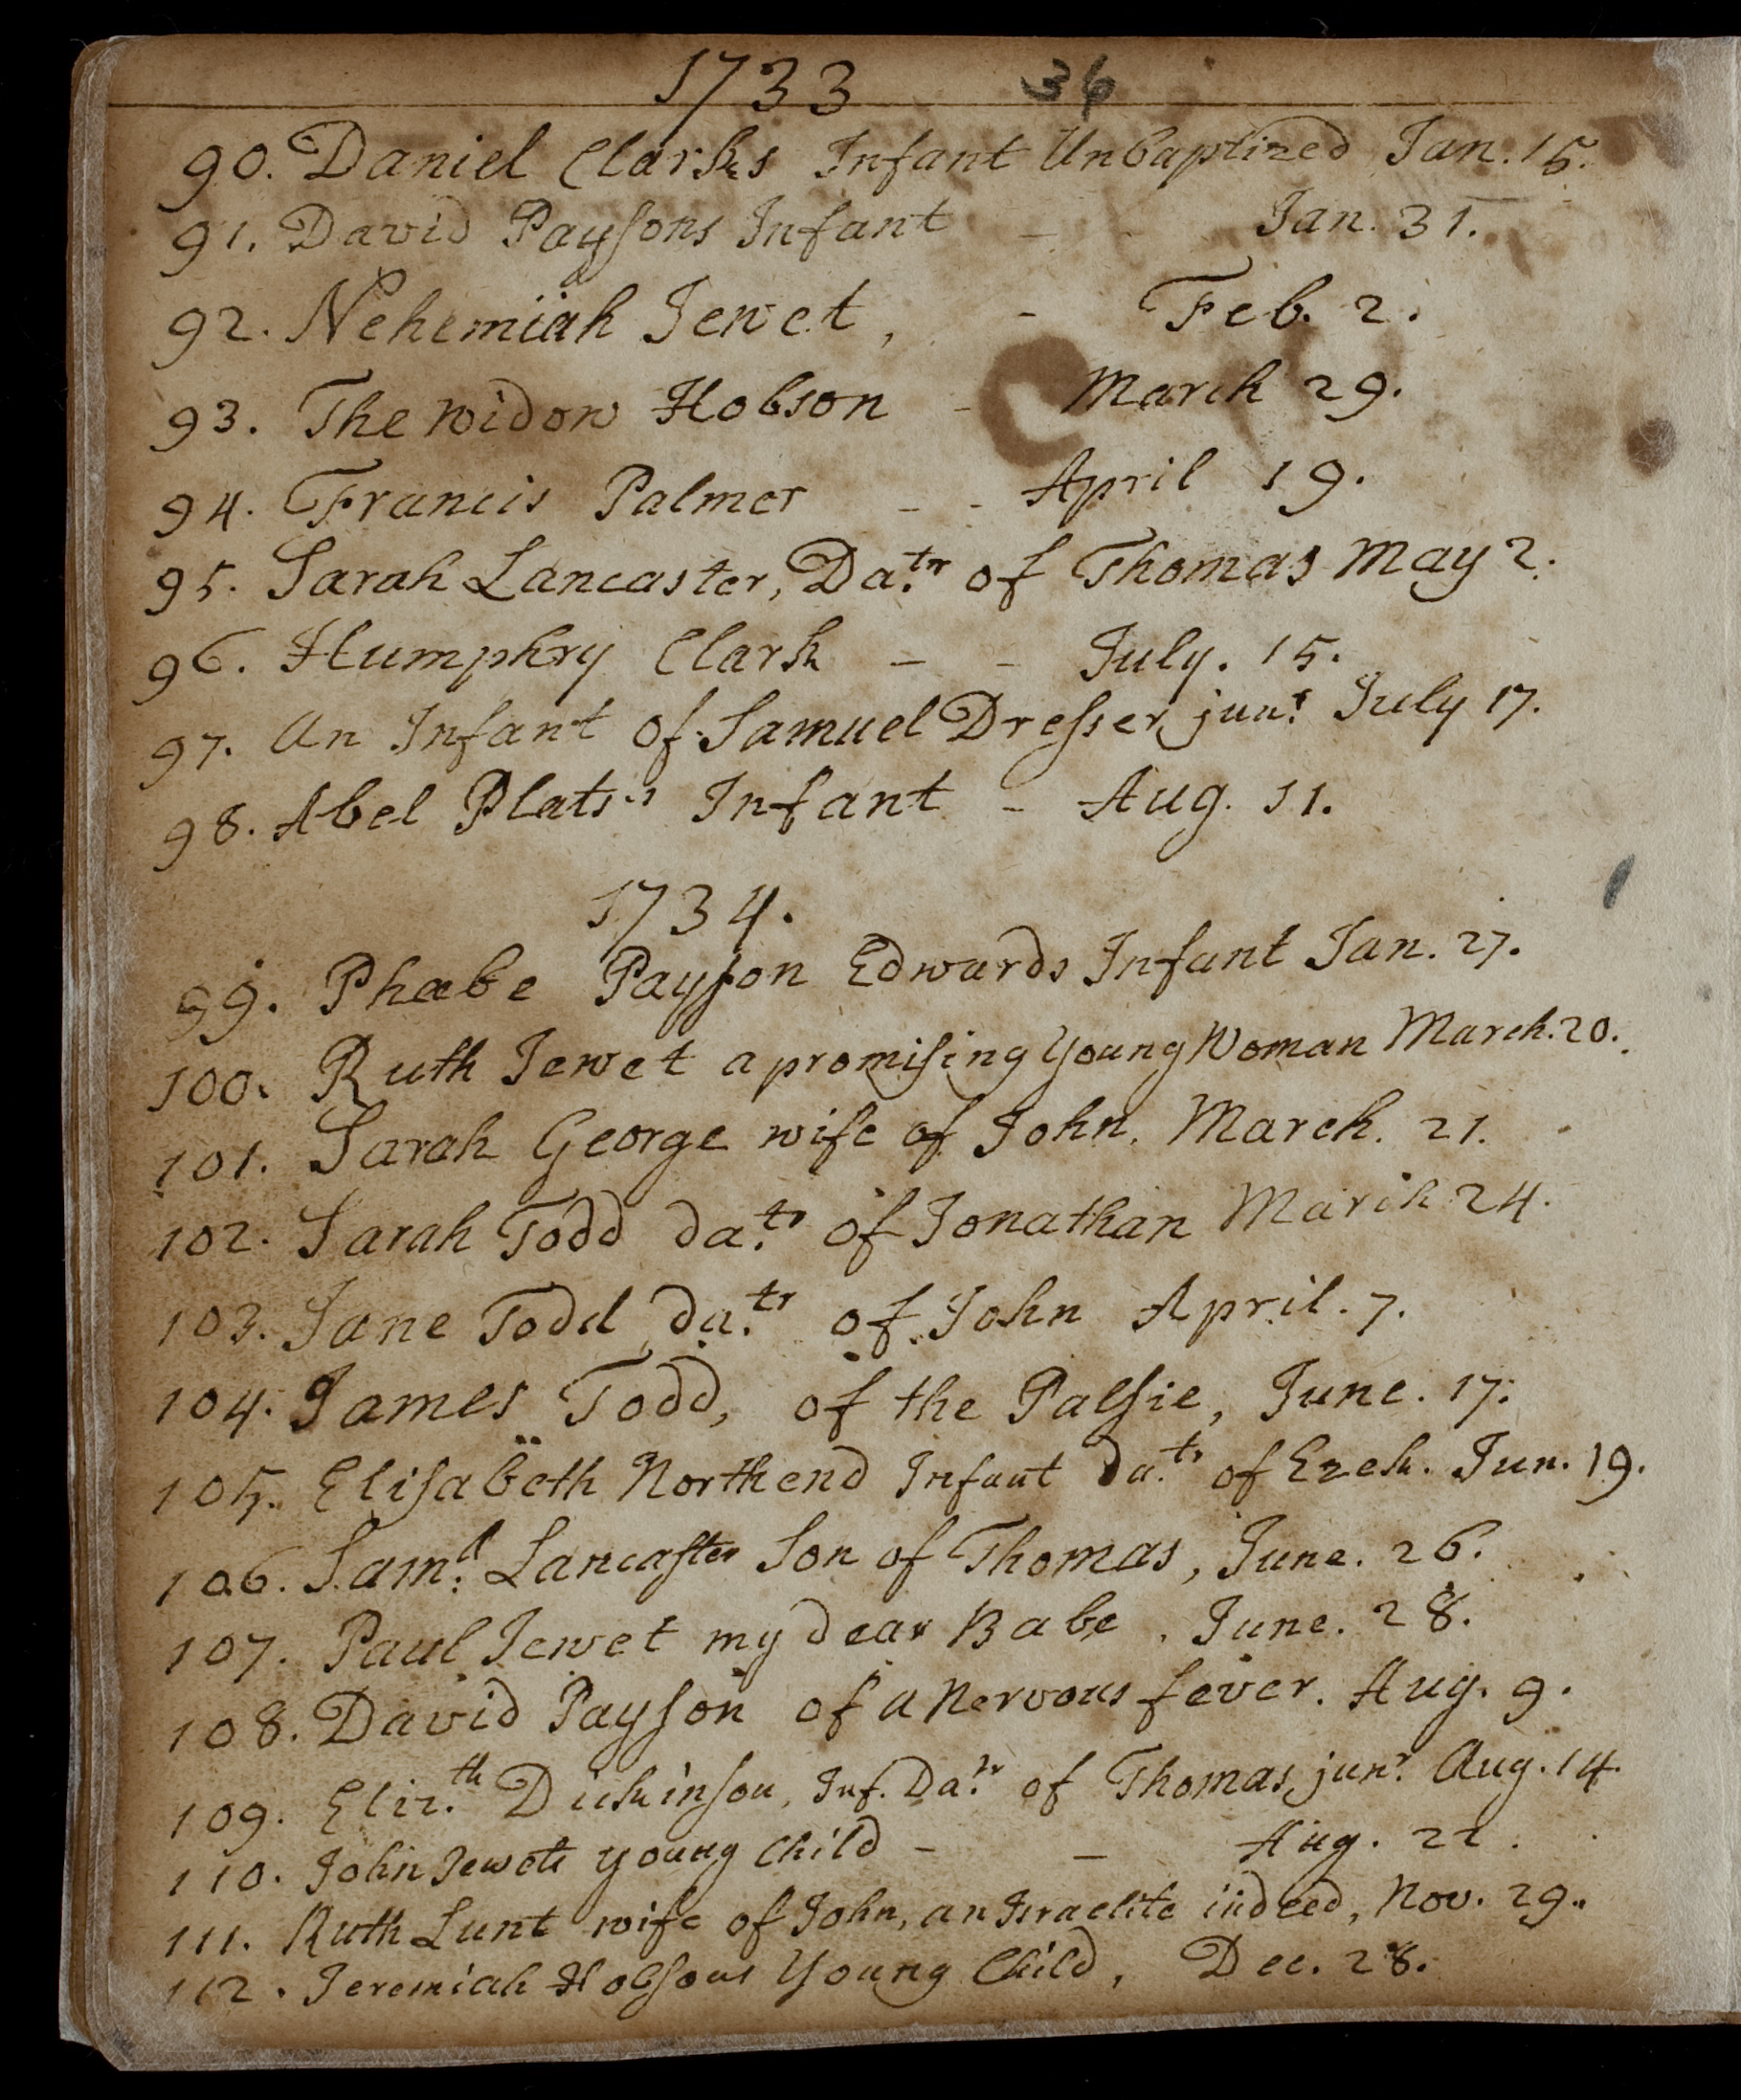 1733 36
90. Daniel Clarks Infant Unbaptized Jan. 15.
91. David Paysons Infant - - Jan. 31.
92. Nehemiah Jewet, - Feb. 2.
93. The widow Hobson - March 29.
94. Francis Palmer - - April 19.
95. Sarah Lancaster, Datr. of Thomas May 2.
96. Humphry Clark - - July. 15.
97. An Infant of Samuel Dresser junr. July 17.
98. Abel Plats's Infant - Aug. 11.
1734.
99. Phœbe Payson Edwards Infant Jan. 27.
100. Ruth Jewet a promising Young Woman March. 20.
101. Sarah George wife of John. March. 21.
102. Sarah Todd datr. of Jonathan March 24.
103. Jane Todd datr. of John April. 7.
104. James Todd, of the Palsie, June. 17.
105. Elisabeth Northend Infant Datr. of Ezek. Jun. 19.
106. Saml. Lancaster Son of Thomas, June. 26.
107. Paul Jewet my dear Babe. June. 28.
108. David Payson of a Nervous fever. Aug. 9.
109. Elizth. Dickinson, Inf. Datr. of Thomas junr. Aug. 14.
110. John Jewets young Child - - Aug. 22.
111. Ruth Lunt wife of John, an Israelite indeed, Nov. 29.
112. Jeremiah Hobsons Young Child, Dec. 28.